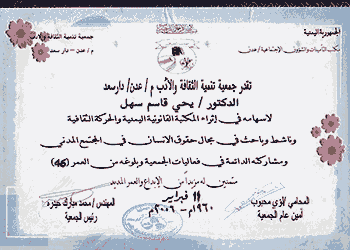 الجمهورية اليمنية
مكتب التأمينات والشئون الاجتماعية / عدن
جمعية تنمية الثقافة والأدب
م / عدن - دار سعد
تقدر جمعية تنمية الثقافة والأدب م / عدن / دار سعد
الدكتور / يحي قاسم سهل
لاسهامه في إثراء المكتبة القانونية اليمنية والحركة الثقافية
وناشط وباحث في مجال حقوق الانسان في المجتمع المدني
ومشاركته الدائمة في فعاليات الجمعية وبلوغه من العمر (46)
متمنين له مزيداً من الإبداع والعمر المديد
11 فبراير
١٩٦٠م - ٢٠٠٦م
المحامي /
أمين عام الجمعية
المهندس / محمد مبارك حيدرة
رئيس الجمعية